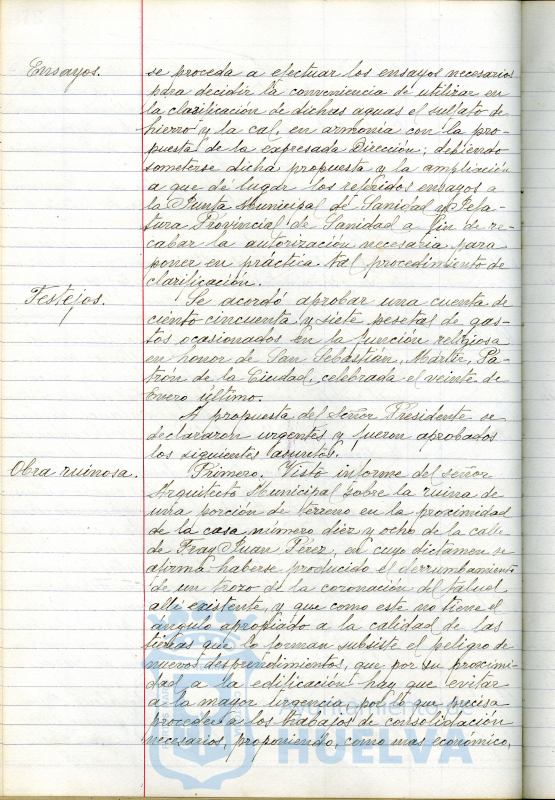 Ensayos.
se proceda a efectuar los ensayos necesarios
para decidir la conveniencia de utilizar en
la clarificación de dichas aguas el sulfato de
hierro y la cal, en armonia con la pro-
puesta de la expresada Dirección; debiendo
someterse dicha propuesta y la ampliación
a que dé lugar los referidos ensayos a
la Junta Municipal de Sanidad y Jefa-
tura Provincial de Sanidad a fin de re-
cabar la autorización necesaria para
poner en práctica tal procedimiento de
clarificación.
Festejos.
Se acordó aprobar una cuenta de
ciento cincuenta y siete pesetas de gas-
tos ocasionados en la función religiosa
en honor de San Sebastián, Mártir, Pa-
trón de la Ciudad, celebrada el veinte de
Enero último.
A propuesta del Señor Presidente se
declararon urgentes y fueron aprobados
los siguientes asuntos.
Obra ruinosa.
Primero. Visto informe del señor
Arquitecto Municipal sobre la ruina de
una porción de terreno en la proximidad
de la casa número diez y ocho de la calle
de Fray Juan Pérez, en cuyo dictamen se
afirma haberse producido el derrumbamiento
de un trozo de la coronación del talud
allí existente, y que como este no tiene el
ángulo apropiado a la calidad de las
tierras que lo forman subsiste el peligro de
nuevos desprendimientos, que por su proximi-
dad a la edificación hay que evitar
a la mayor urgencia, por lo que precisa
proceder a los trabajos de consolidación
necesarios, proponiendo, como mas económico,
HUELVA